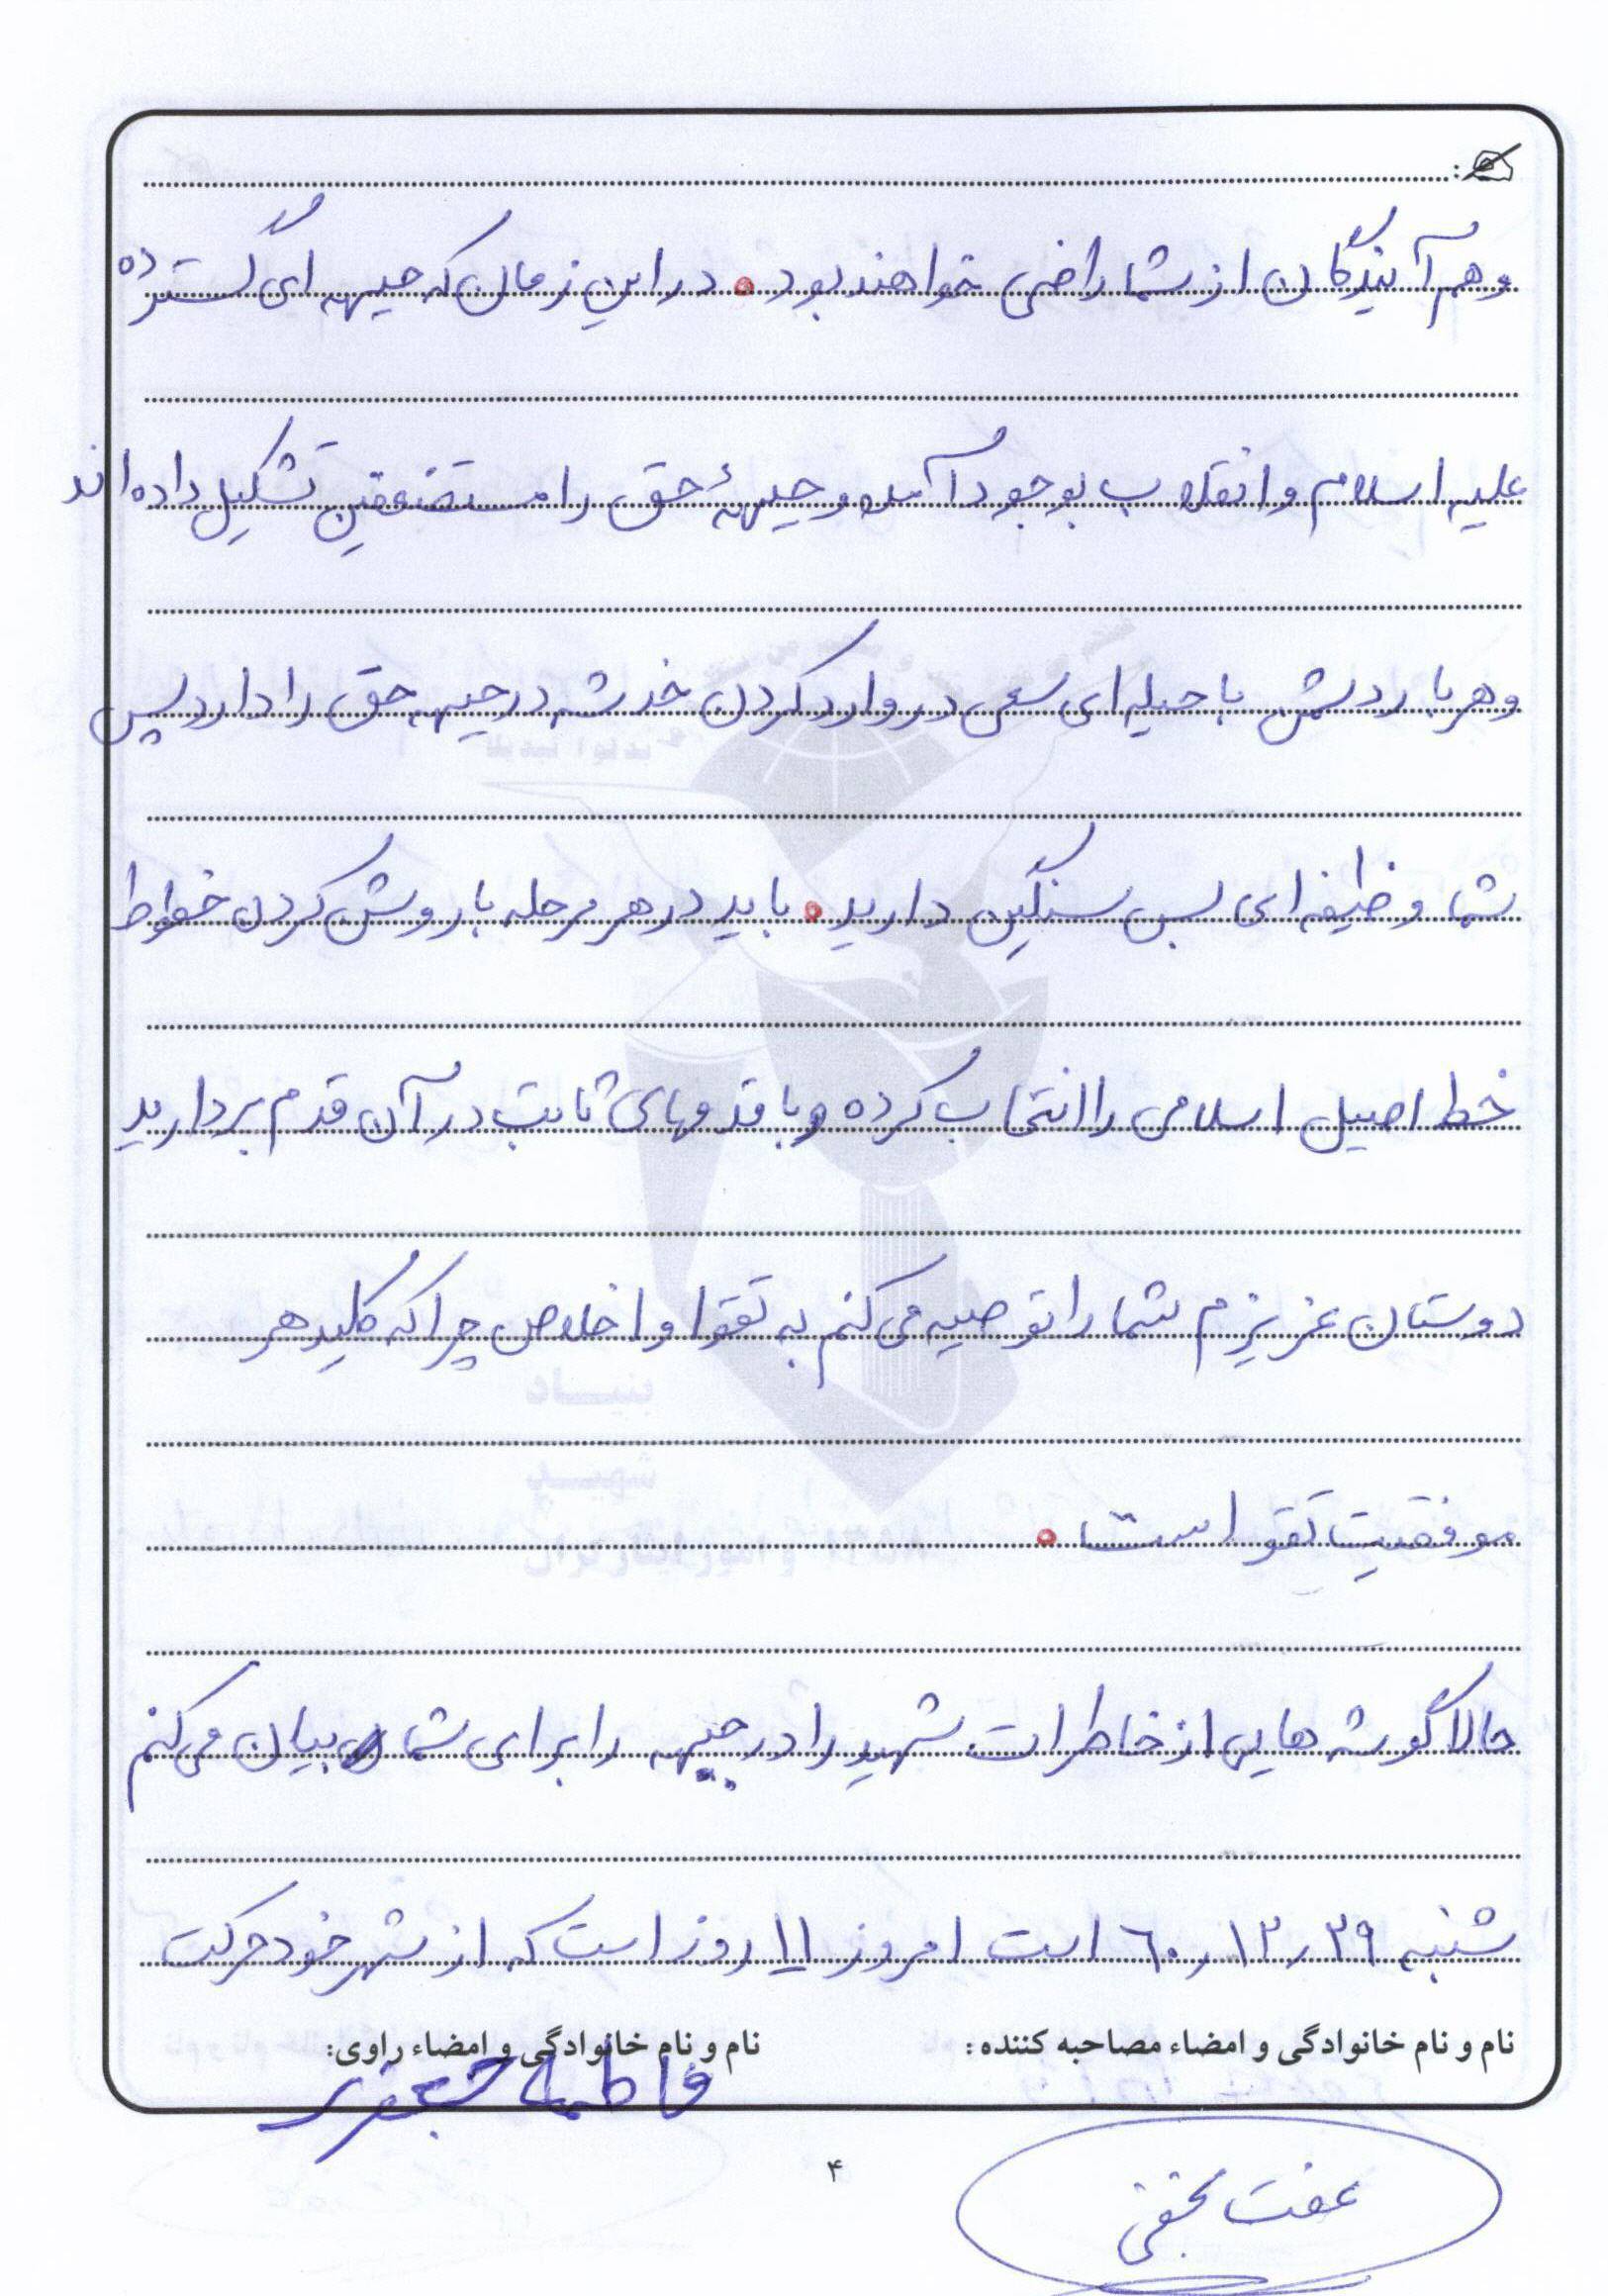 وهم آیندگان از شما راضی خواهند بود. در این زمان که جبهه ای گسترده
علیه اسلام و انقلاب بوجود آمده و جبههٔ حق را مستضعفین تشکیل داده اند
و هر بار دشمن با حیله ای سعی در وارد کردن خدشه در جبهه حق را دارد پس
شما وظیفه ای بس سنگین دارید. باید در هر مرحله با روشن کردن خطوط
خط اصیل اسلامی را انتخاب کرده و با قدمهای ثابت در آن قدم بردارید
دوستان عزیزم شما را توصیه می کنم به تقوا و اخلاص چرا که کلید هر
موفقیت تقوا است.
حالا گوشه هایی از خاطرات شهید را در جبهه را برای شما بیان می کنم
شنبه ۳۹ر۱۳ر٦۰ است امروز ۱۱ روز است که از شهر خود حرکت
نام و نام خانوادگی و امضاء مصاحبه کننده :
نام و نام خانوادگی و امضاء راوی:
فاطمه جعفری
۴
عفت نجفی